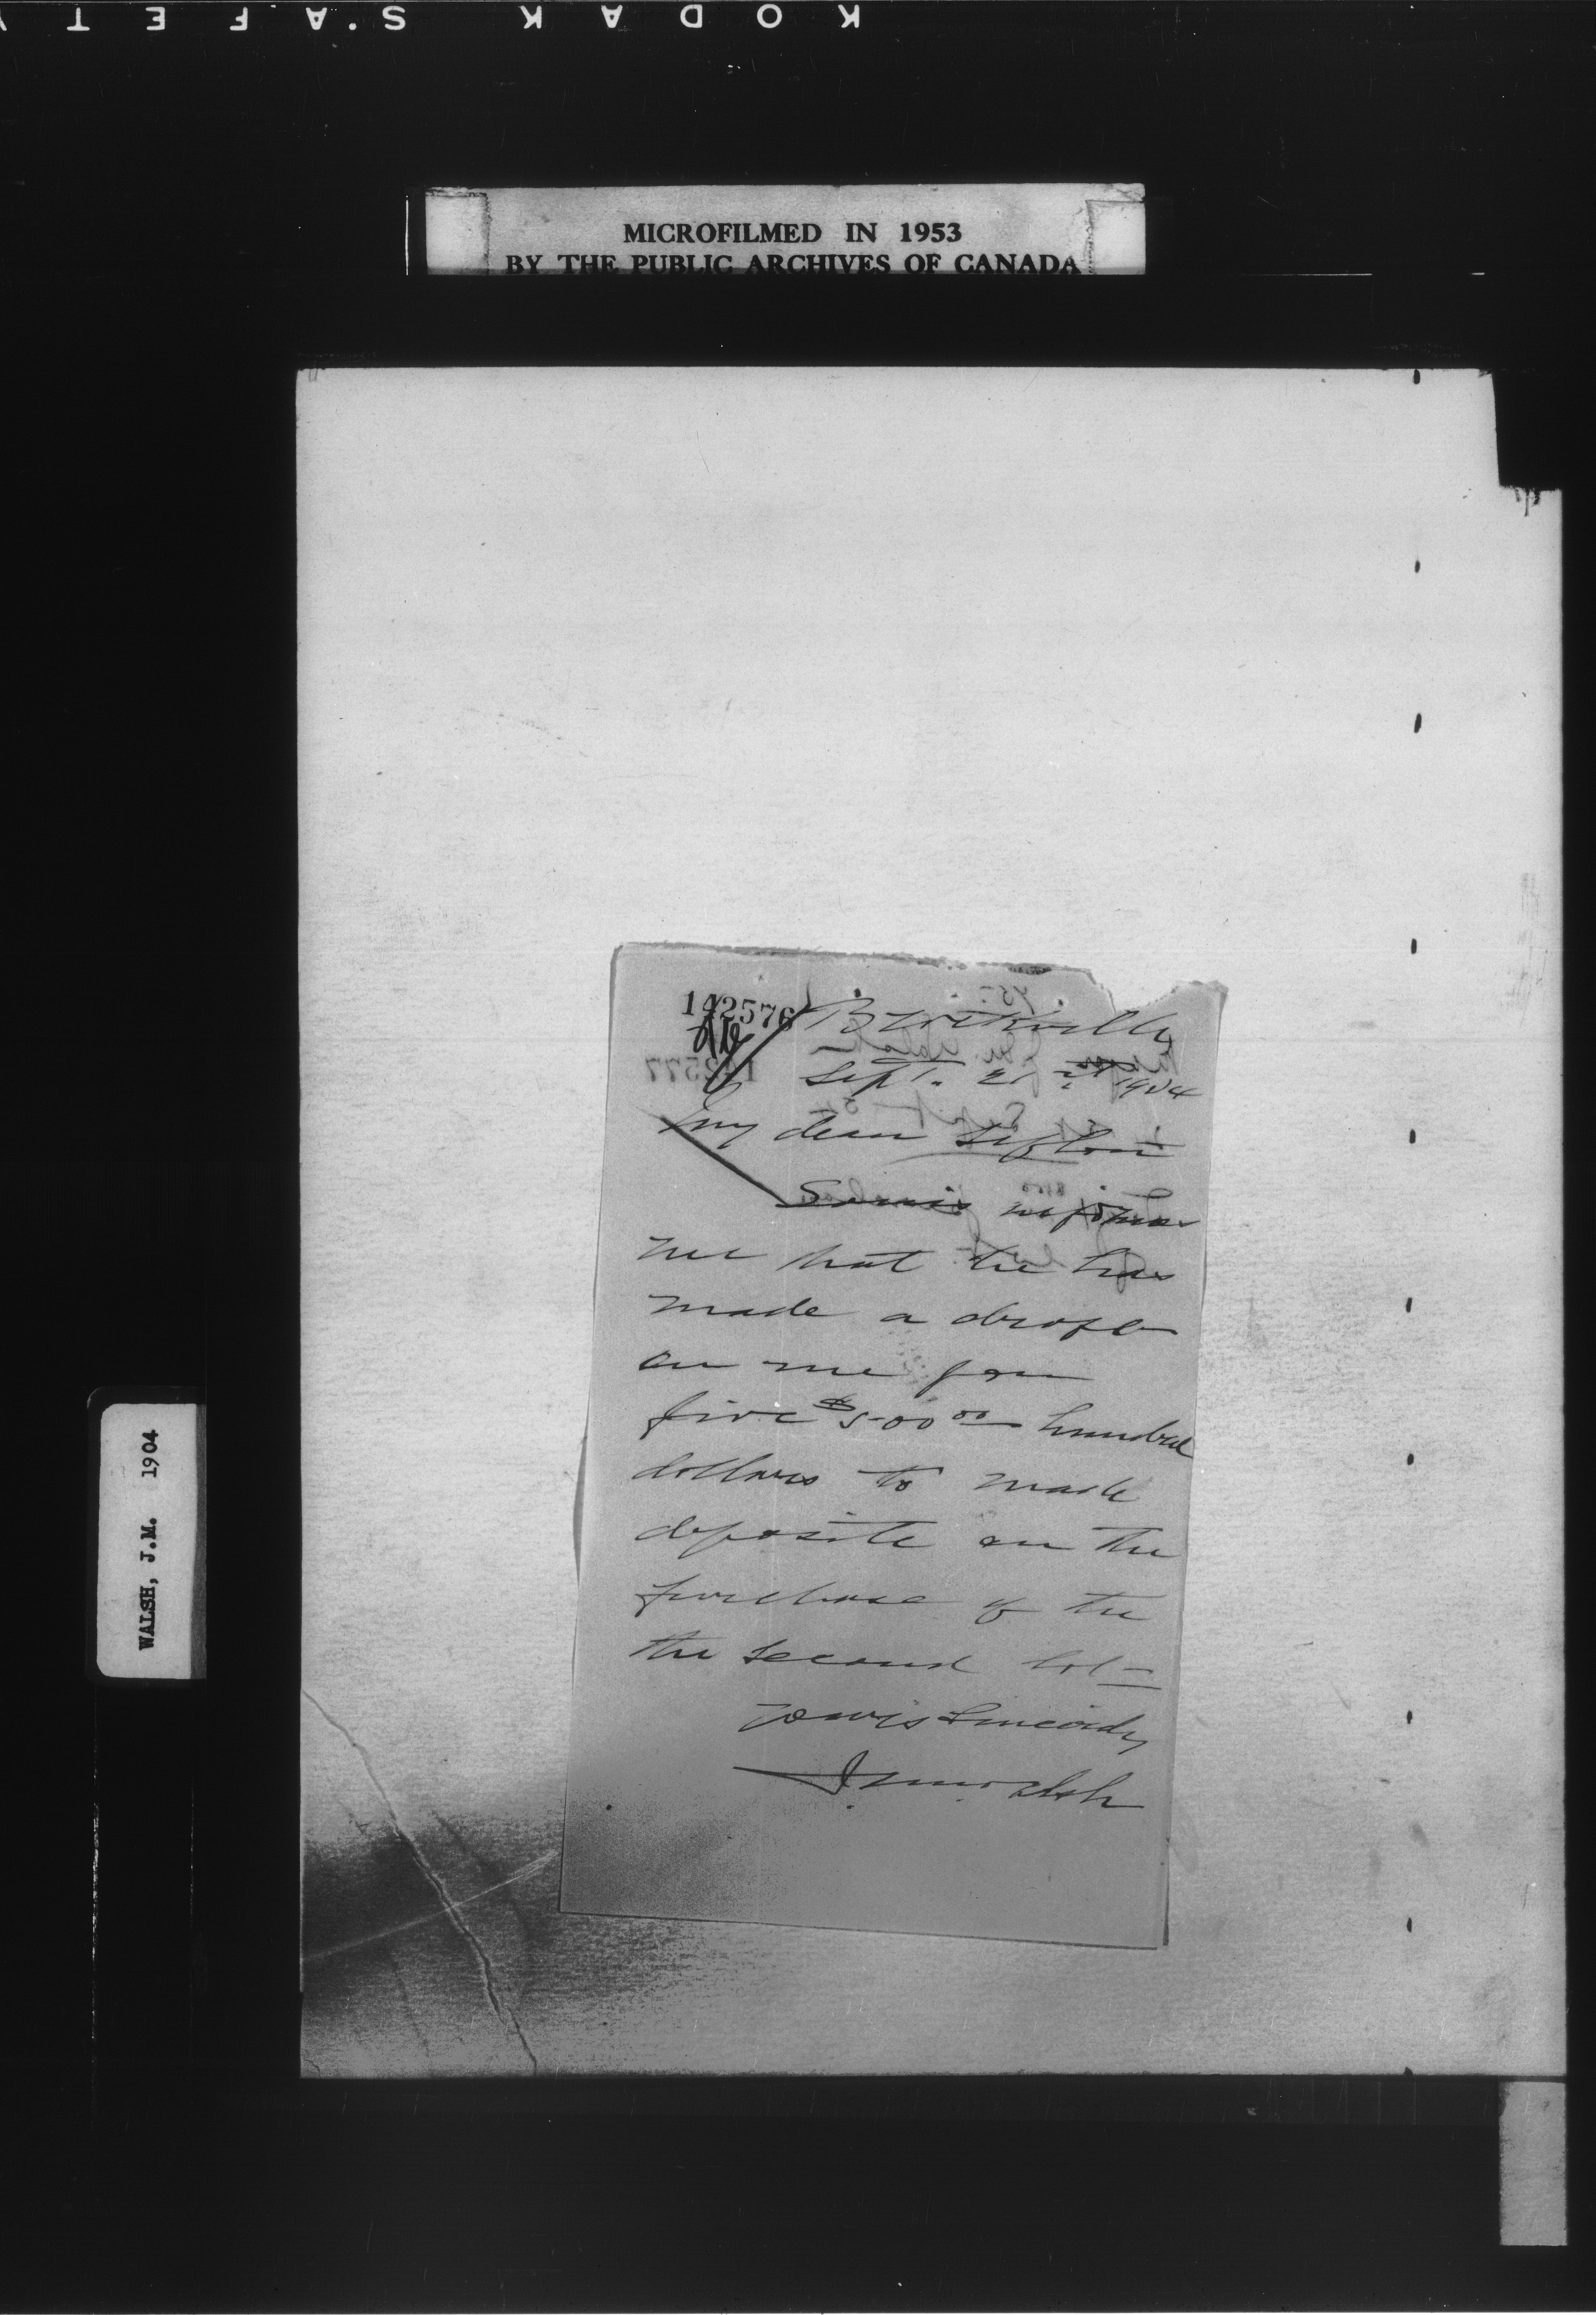 KODAK SAFETY
MICROFILMED IN 1953
BY THE PUBLIC ARCHIVES OF CANADA
WALSH, J.M. 1904
142576
142577
Brockville
Sept. 21st 1904
My dear Sifton
informs
me that he has
made a draft
on me for
five $500 00 hundred
dollars to made
deposite on the
purchase of the
the second lot
Yours Sincerely
J M Walsh